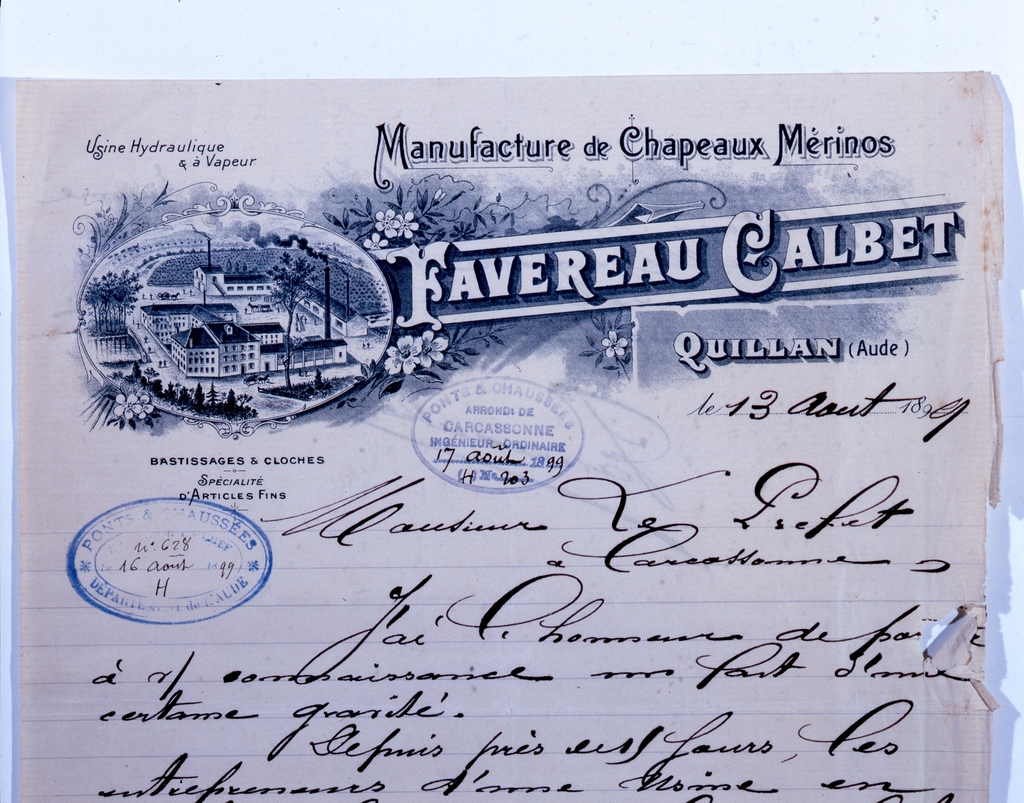 Usine Hydraulique
& à Vapeur
Manufacture de Chapeaux Mérinos
FAVEREAU CALBET
QUILLAN (Aude)
le 13 Aout 1899
PONTS & CHAUSSÉES
ARRONDI DE
CARCASSONNE
INGÉNIEUR ORDINAIRE
17 août 1899
H No 203
BASTISSAGES & CLOCHES
SPÉCIALITÉ
D'ARTICLES FINS
PONTS & CHAUSSÉES
n° 628
16 Aout 1899
H
DÉPARTEMENT de L'AUDE
Monsieur Le Prefet
a Carcassonne
J'ai l'honneur de
à v/ connaissance un fait d'une
certaine gravité.
Depuis près de jours, les
entrepreneurs d'une Usine en